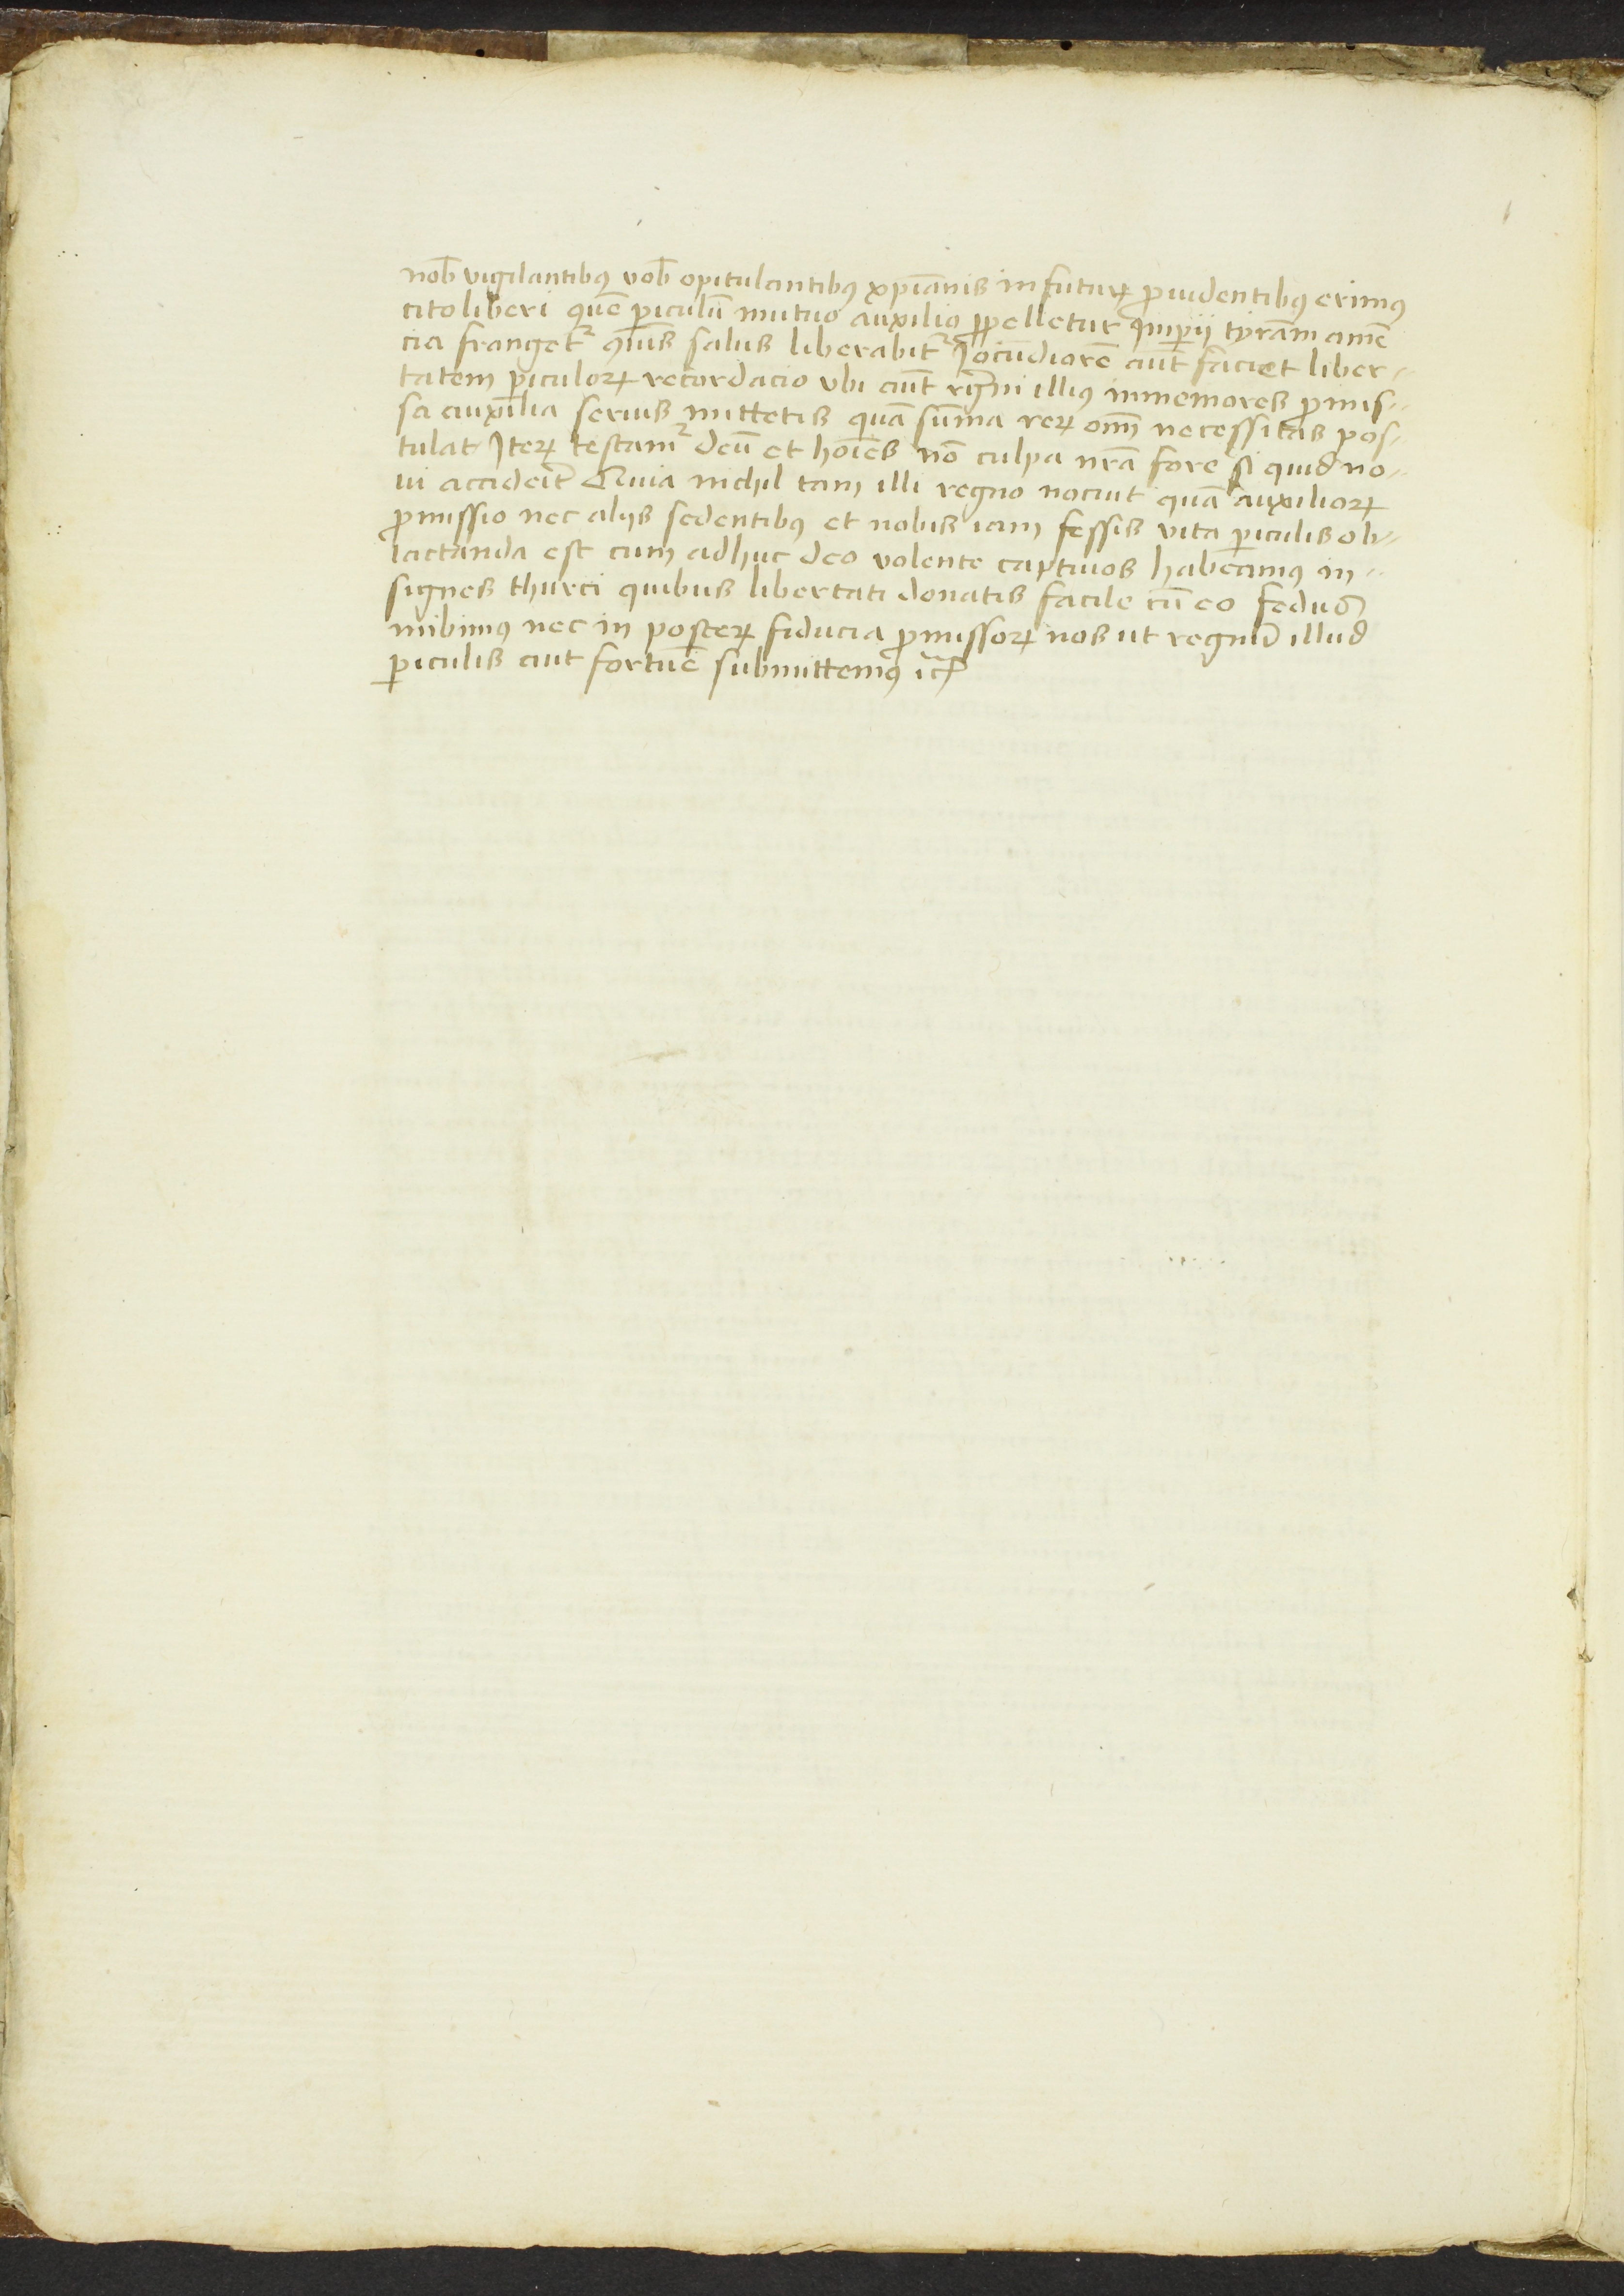 nob̄ vigilantibꝯ vob̄ opitulantibꝯ xp̄ianis in futurꝝ ꝓuidentibꝯ erimꝯ
cito liberi quē ꝑiculū mutuo auxilio ꝓpelletur impij tyrāni amē
cia franget² salus liberabit² Jocūdiorē aūt faciet liber-
tatem ꝑiculorꝝ recordacio vbi aūt rḡni illius inmemores ꝓmis-
sa auxilia serius mittetis quā sūma rerꝝ om̄ necessitas pos-
tulat Iterꝝ testam² deū et hoīes nō culpa nr̄a fore si quid no-
ui acciderit Quia nichil tam illi regno nociuit quā auxiliorꝝ
ꝓmissio nec alijs sedentibꝯ et nobis iam fessis vita ꝑiculis ob-
iactanda est cum adhuc deo volente captiuos habeamꝯ in-
signes thurci quibus libertati donatis facile cū eo fedus
inibimꝯ nec in posterꝝ fiducia ꝓmissorꝝ nos ut regnū illud
ꝑiculis aut fortūe submittemꝯ